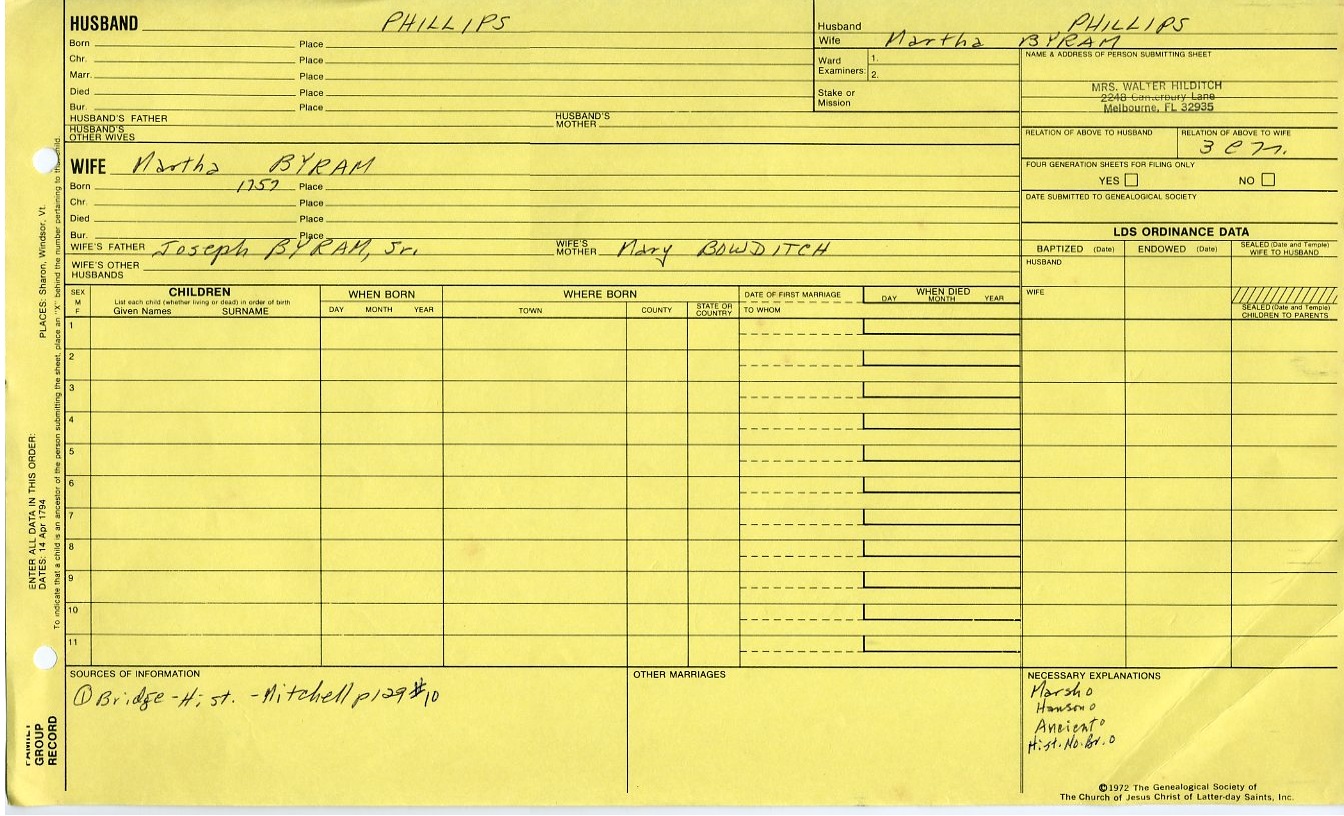 HUSBAND PHILLIPS
Born Place
Chr. Place
Marr. Place
Died Place
Bur. Place
HUSBAND'S FATHER HUSBAND'S MOTHER
HUSBAND'S OTHER WIVES
Husband PHILLIPS
Wife Martha BYRAM
Ward Examiners: 1.
2.
Stake or Mission
NAME & ADDRESS OF PERSON SUBMITTING SHEET
MRS. WALTER HILDITCH
2248 Canterbury Lane
Melbourne, FL 32935
RELATION OF ABOVE TO HUSBAND RELATION OF ABOVE TO WIFE
FOUR GENERATION SHEETS FOR FILING ONLY
YES NO
DATE SUBMITTED TO GENEALOGICAL SOCIETY
WIFE Martha BYRAM
Born 1757 Place
Chr. Place
Died Place
Bur. Place
WIFE'S FATHER Joseph BYRAM, Jr. WIFE'S MOTHER Mary BOWDITCH
WIFE'S OTHER HUSBANDS
LDS ORDINANCE DATA
BAPTIZED (Date) ENDOWED (Date) SEALED (Date and Temple) WIFE TO HUSBAND
HUSBAND
WIFE
SEALED (Date and Temple) CHILDREN TO PARENTS
SEX M F
CHILDREN
List each child (whether living or dead) in order of birth
Given Names SURNAME
WHEN BORN
DAY MONTH YEAR
WHERE BORN
TOWN COUNTY STATE OR COUNTRY
DATE OF FIRST MARRIAGE
TO WHOM
WHEN DIED
DAY MONTH YEAR
1
2
3
4
5
6
7
8
9
10
11
SOURCES OF INFORMATION
① Bridge-Hist. - Mitchell p129 #10
OTHER MARRIAGES
NECESSARY EXPLANATIONS
Marsh o
Hanson o
Ancient o
Hist. No. Br. o
©1972 The Genealogical Society of
The Church of Jesus Christ of Latter-day Saints, Inc.
ENTER ALL DATA IN THIS ORDER:
DATES: 14 Apr 1794
PLACES: Sharon, Windsor, Vt.
To indicate that a child is an ancestor of the person submitting the sheet, place an "X" behind the number pertaining to that child.
FAMILY
GROUP
RECORD